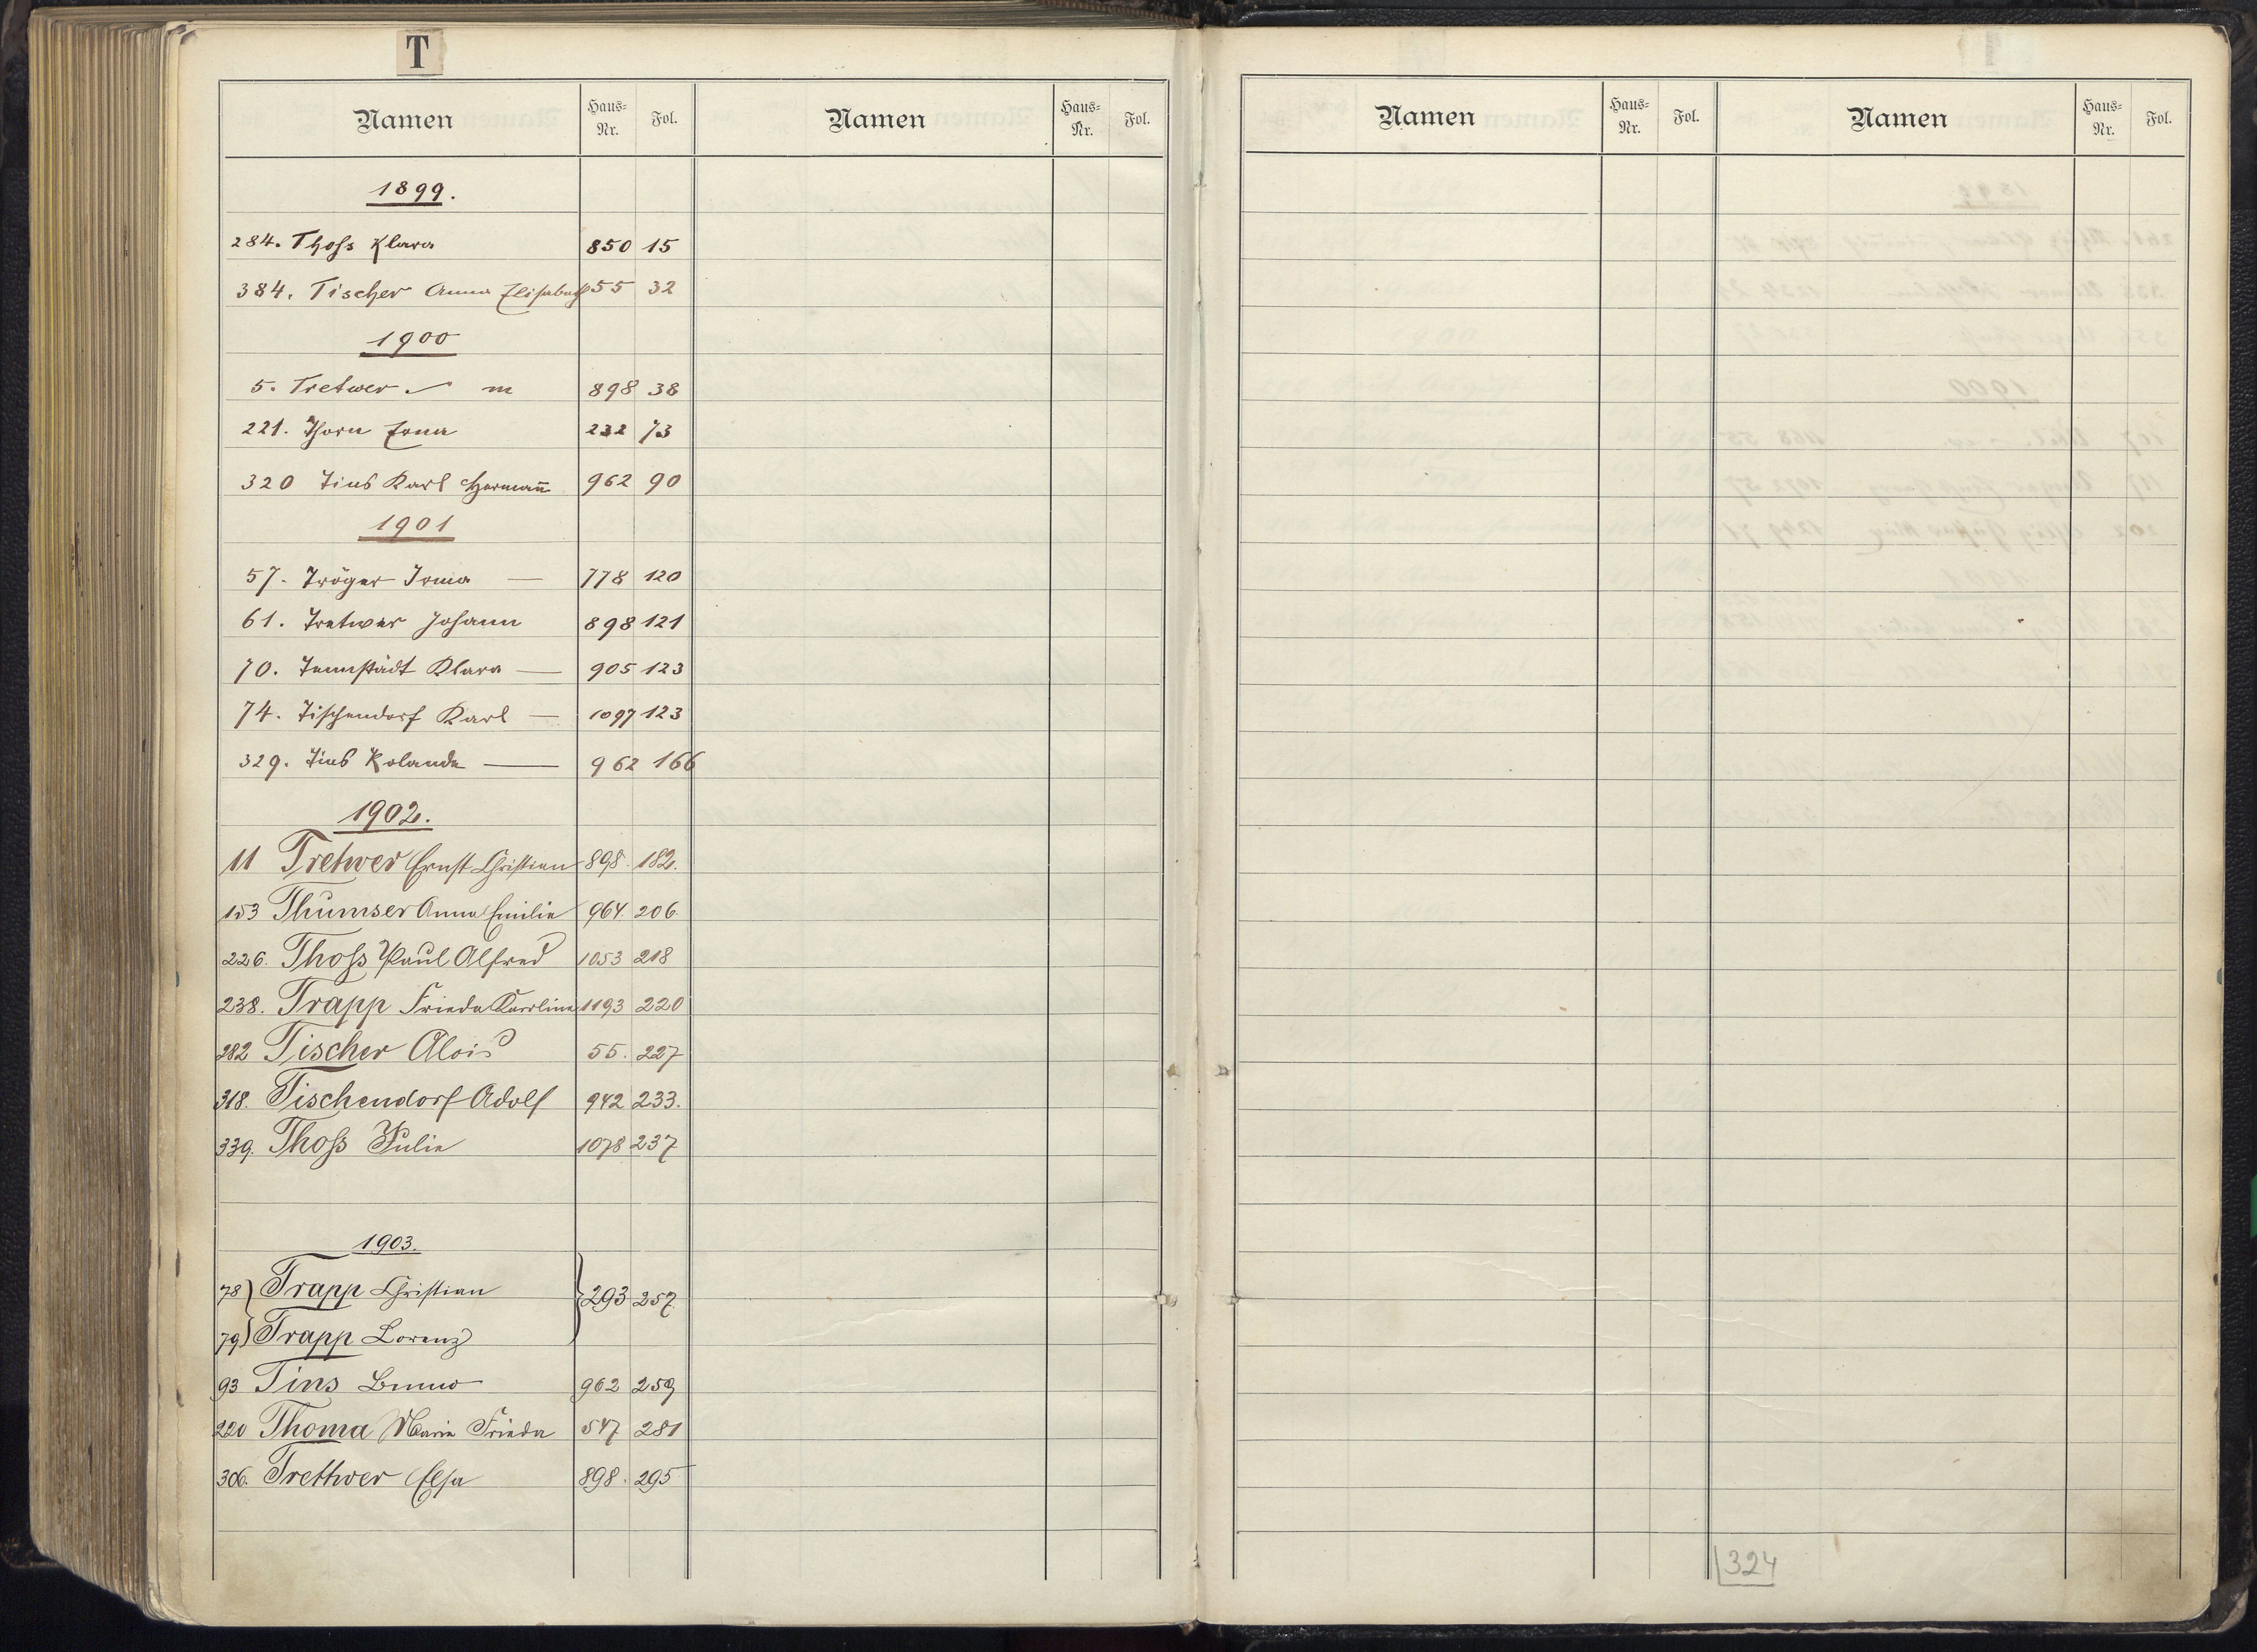 T
Namen Haus-Nr. Fol. Namen Haus-Nr. Fol.
1899.
284. Thoß Klara 850 15
384. Tischer Anna Elisabeth 55 32
1900
5. Tretwer m 898 38
221. Thorn 232 73
320 Tins Karl Hermann̄ 962 90
1901
57. Tröger Irma — 778 120
61. Tretwer Johann 898 121
70. Tennstädt Klara — 905 123
74. Tischendorf Karl — 1097 123
329. Tins Rolanda — 962 166
1902.
11 Tretwer Ernst Christian 898. 182.
153 Thumser Anna Emilie 964. 206.
226. Thoß Paul Alfred 1053 218
238. Trapp Frieda Karoline 1193 220
282 Tischer Alois 55. 227
318. Tischendorf Adolf 942 233.
339. Thoß Julie 1078 237
1903.
78) Trapp Christian } 293 257.
79) Trapp Lorenz
93 Tins Bruno 962 259
220 Thoma Marie Frieda 547 281
306. Trettwer Elsa 898. 295
Namen Haus-Nr. Fol. Namen Haus-Nr. Fol.
324